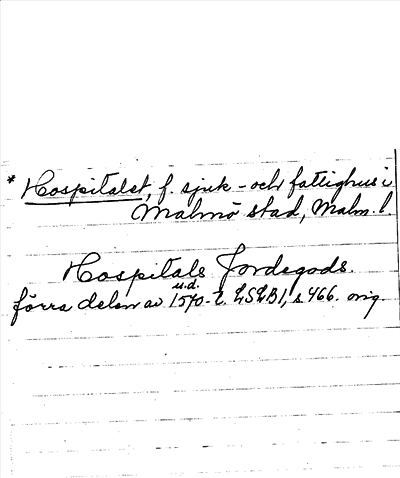 * Hospitalet, f. sjuk- och fattighus i
Malmö stad, Malm. l.
Hospitals Jordegods.
u.d.
förra delen av 1570-t. LSLB1, s 466. orig.